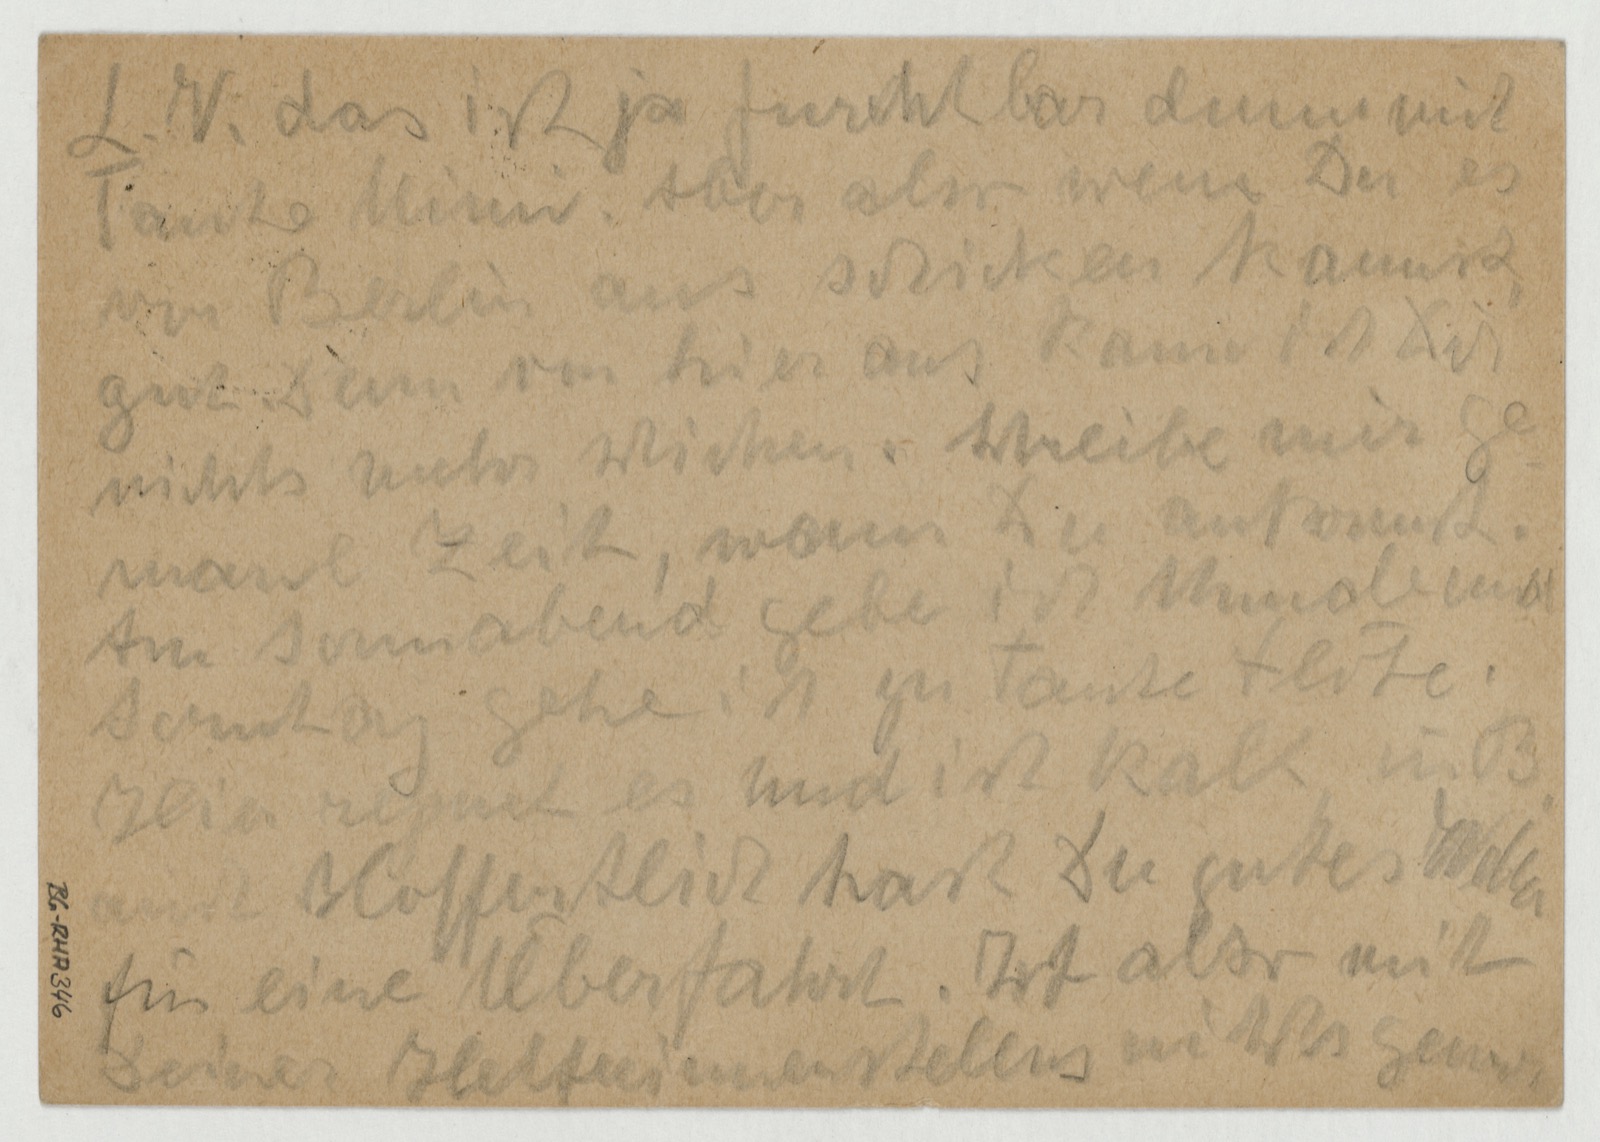 L. N. das ist ja furchtbar dumm mit
Tante Mimi. Aber also wenn Du es
von Berlin aus schicken kannst,
gut. Denn von hier aus kann ich Dir
nichts mehr schicken. Schreibe mir ge-
naue Zeit, wann Du ankommst.
Am Sonnabend gebe ich
Sonntag gehe ich zu Tante
Hier regnet es und ist kalt in B.
auch Hoffentlich hast Du gutes Wetter
für eine Überfahrt. Ist also mit
Deiner nichts gew.
BG-RHR346